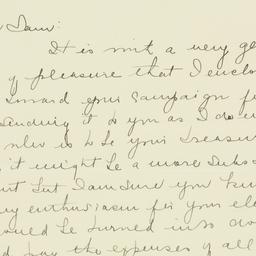 Sam:
It is with a very ge
of pleasure that I enclo
toward your campaign f
sending it to you as I do
who is to be your treasur
it might be a more subs
but I am sure you kn
my enthusiasm for your ele
could be turned into do
pay the expenses of all